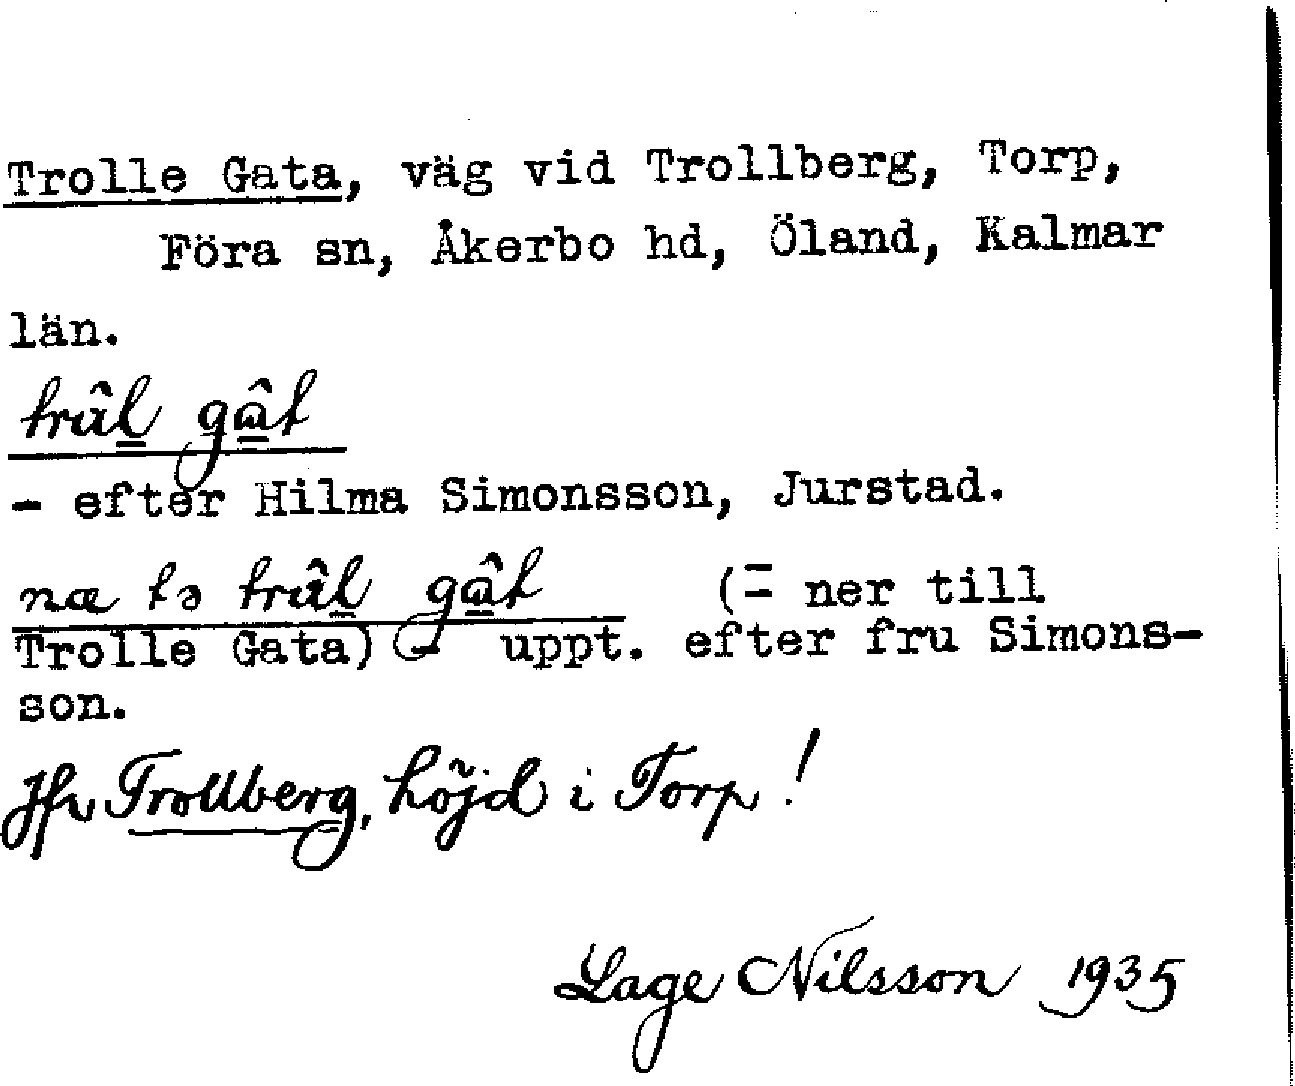 Trolle Gata, väg vid Trollberg, Torp,
Föra sn, Åkerbo hd, Öland, Kalmar
län.
- efter Hilma Simonsson, Jurstad.
(= ner till
Trolle Gata) uppt. efter fru Simons-
son.
Jfr Trollberg, höjd i Torp!
Lage Nilsson 1935